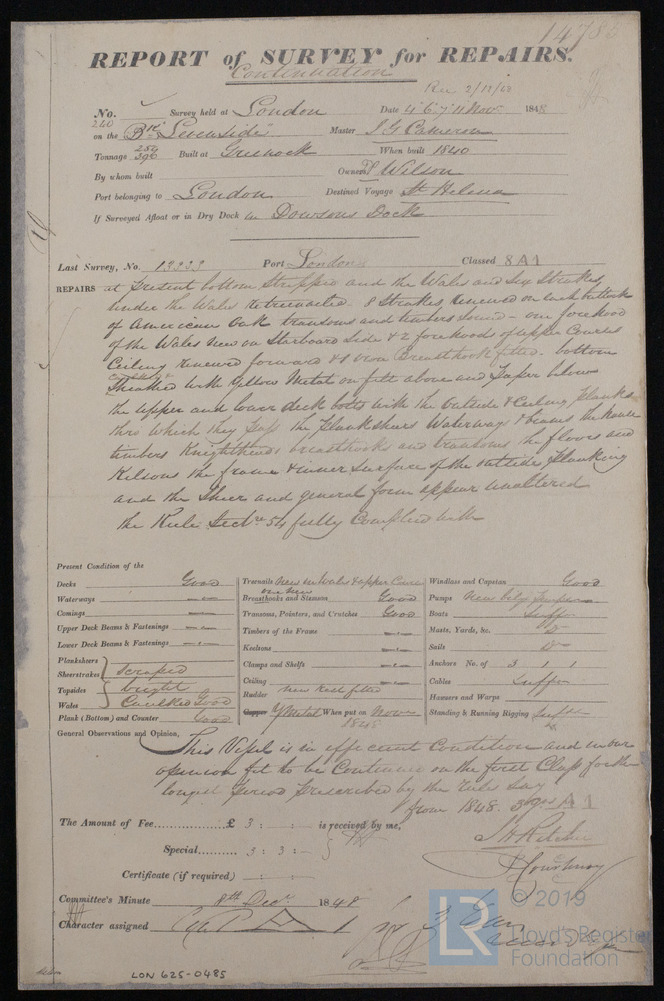 1478
REPORT of SURVEY for REPAIRS.
Continuation
Rec 2/12/48
No. 240 Survey held at London Date 4 6 7 11 Nov 1848
on the Bk Levenside Master J G Cameron
Tonnages 256 296 Built at Greenock When built 1840
By whom built Owner Wilson
Port belonging to London Destined Voyage St Helena
If Surveyed Afloat or in Dry Dock in Dowsons Dock
Last Survey, No. 13333 Port London Classed 8 A1
REPAIRS at Present bottom Stripped and the Wales and Six Strakes
under the Wales retreenailed 8 Strakes renewed on each buttock
of American Oak transoms and timbers sound - one forehood
of the Wales new on Starboard Side & 2 forehoods of upper Course
Ceiling renewed forward & 1 iron Breasthook fitted. bottom
Sheathed with Yellow Metal on felt above and Paper below
the upper and lower deck bolts with the Outside & Ceiling Planks
thro which they pass the Planksheers Waterways & beams the
timbers Knightheads breasthooks and transoms the floors and
Kelsons the frame & inner surface of the outside Planking
and the Sheer and general form appear unaltered
the Rule Sect 54 fully Complied with
Present Condition of the
Decks Good
Waterways
Comings
Upper Deck Beams & Fastenings
Lower Deck Beams & Fastenings
Planksheers
Sheerstrakes scraped
Topsides bright
Wales Caulked Good
Plank (Bottom) and Counter Good
Treenails New in Wales & upper Course
one new
Breasthooks and Stemson Good
Transoms, Pointers, and Crutches Good
Timbers of the Frame
Keelsons
Clamps and Shelfs
Ceiling
Rudder new fitted
Copper Y Metal When put on Nov
1848
Windlass and Capstan Good
Pumps New
Boats Suffn
Masts, Yards, &c. Do
Sails Do
Anchors No. of 3 1 1
Cables Suffn
Hawsers and Warps
Standing & Running Rigging Suffn
General Observations and Opinion,
This Vessel is in efficient Condition and in our
opinion fit to be Continued on the first Class for the
longest Period prescribed by the rules say
from 1848. 3 yrs A1
The Amount of Fee £ 3 : is received by me,
Special 3 : 3 : -
Certificate (if required) :
J H Ritchie
J Courtenay
Committee's Minute 8th Decr 1848
Character assigned
LON 625-0485
LR
© 2019
Lloyd's Register
Foundation